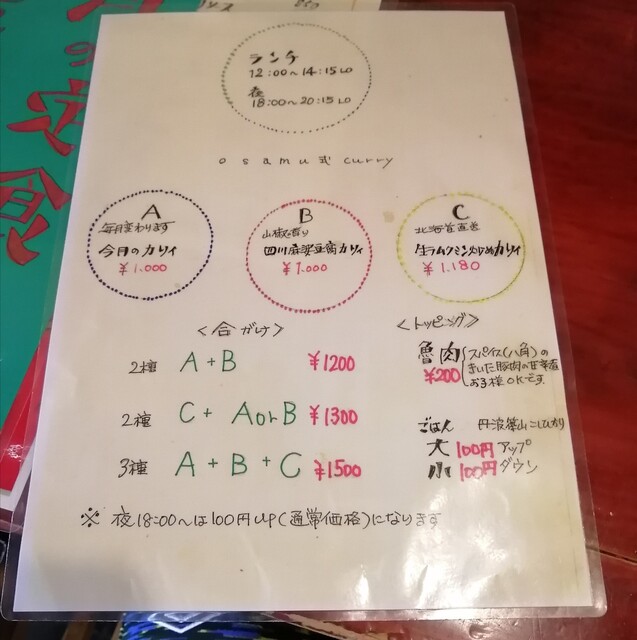 ランチ
12:00～14:15 LO
夜
18:00～20:15 LO
osamu式curry
A
毎月変わります
今月のカリィ
¥1.000
B
山椒香り
四川麻婆豆腐カリィ
¥1.000
C
北海道直送
生ラムクミン炒めカリィ
¥1.180
<合がけ>
2種 A+B ¥1200
2種 C+ AorB ¥1300
3種 A+B+C ¥1500
<トッピング>
魯肉
¥200
スパイス(八角)の
きいた豚肉の甘辛煮
お子様OKです。
ごはん 丹波篠山こしひかり
大 100円アップ
小 100円ダウン
※ 夜18:00～は100円up(通常価格)になります